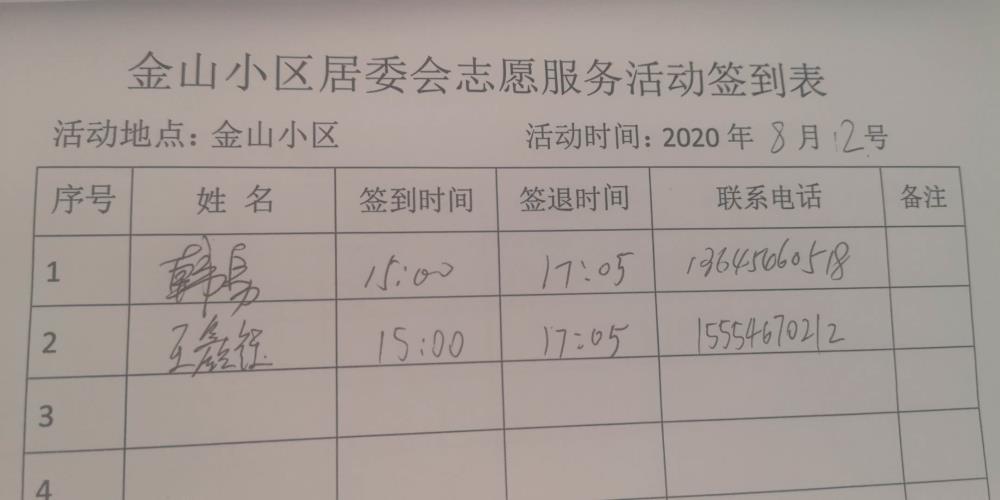 金山小区居委会志愿服务活动签到表
活动地点：金山小区 活动时间：2020 年 8 月 12 号
序号 姓 名 签到时间 签退时间 联系电话 备注
1 韩易 15:00 17:05 13645660518
2 王鑫 15:00 17:05 15554670212
3
4